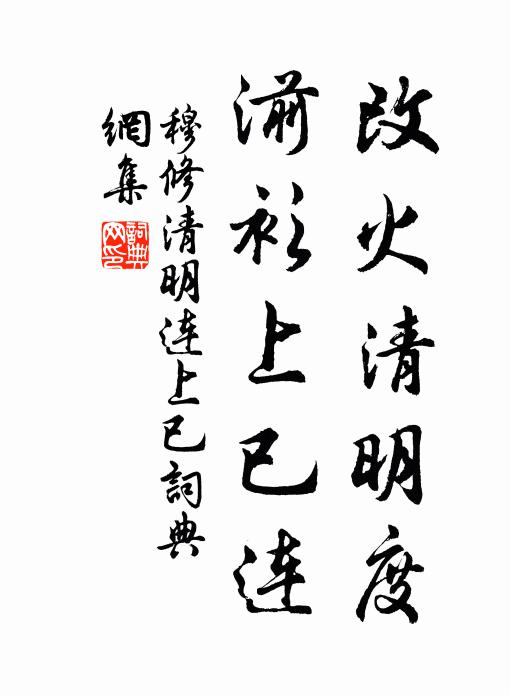 改火清明度
湔衫上巳連
穆修清明連上巳詞典
網集
詞典
网印